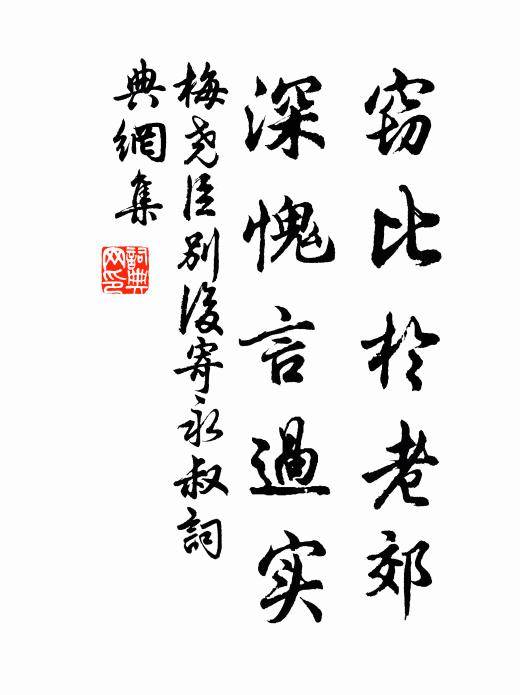 窃比於老郊
深愧言過实
梅尧臣别後寄永叔詞
典網集
詞典
网印